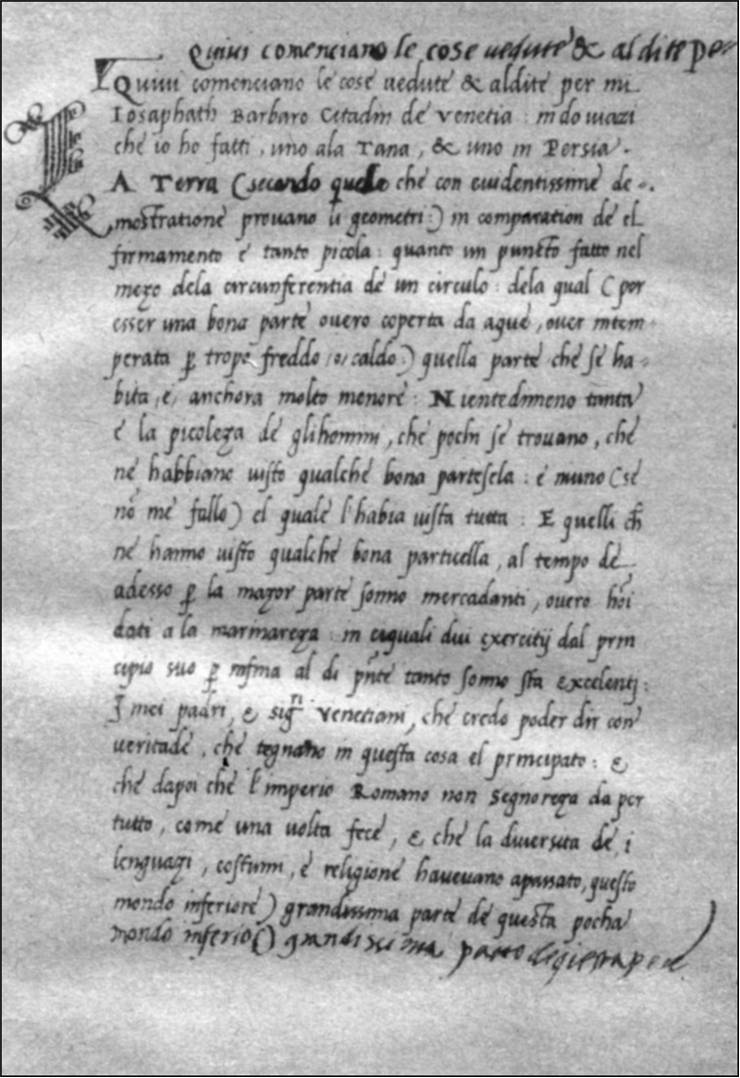 Quiui comenciano le cose uedute & aldite pe
Quiui comenciano le cose uedute & aldite per mi
Iosaphath Barbaro Citadin de Venetia: in do uiazi
che io ho fatti, uno ala Tana, & uno in Persia.
LA Terra (secondo quello che con euidentissime de-
mostratione prouano li geometri:) in comparation de el
firmamento e tanto picola: quanto un puncto fatto nel
mezo dela circunferentia de un circulo: dela qual (per
esser una bona parte ouero coperta da aque, ouer intem
perata p̱ tropo freddo /o/ caldo:) quella parte che se ha-
bita, e, anchora molto menore: Nientedimeno tanta
e la picoleza de glihomini, che pochi se trouano, che
ne habbiano uisto qualche bona partesela: e niuno (se
nō me fallo) el quale l'habia uista tutta: E quelli ch̄
ne hanno uisto qualche bona particella, al tempo de
adesso p̱ la mazor parte sonno mercadanti, ouero hōi
dati a la marinareza: in eiguali dui exercitij dal prin
cipio suo p̱ infina al di pn̄te tanto sonno sta excelenti:
I mei padri, e sigri Venetiani, che credo poder dir con
ueritade, che tegnano in questa cosa el principato: e
che dapoi che l'imperio Romano non segnoreza da per
tutto, come una uolta fece, e che la diuersita de i
lenguazi, costumi, e religione haueuano apassato, questo
mondo inferiore) grandissima parte de questa pocha
mondo inferio() grandissima parte